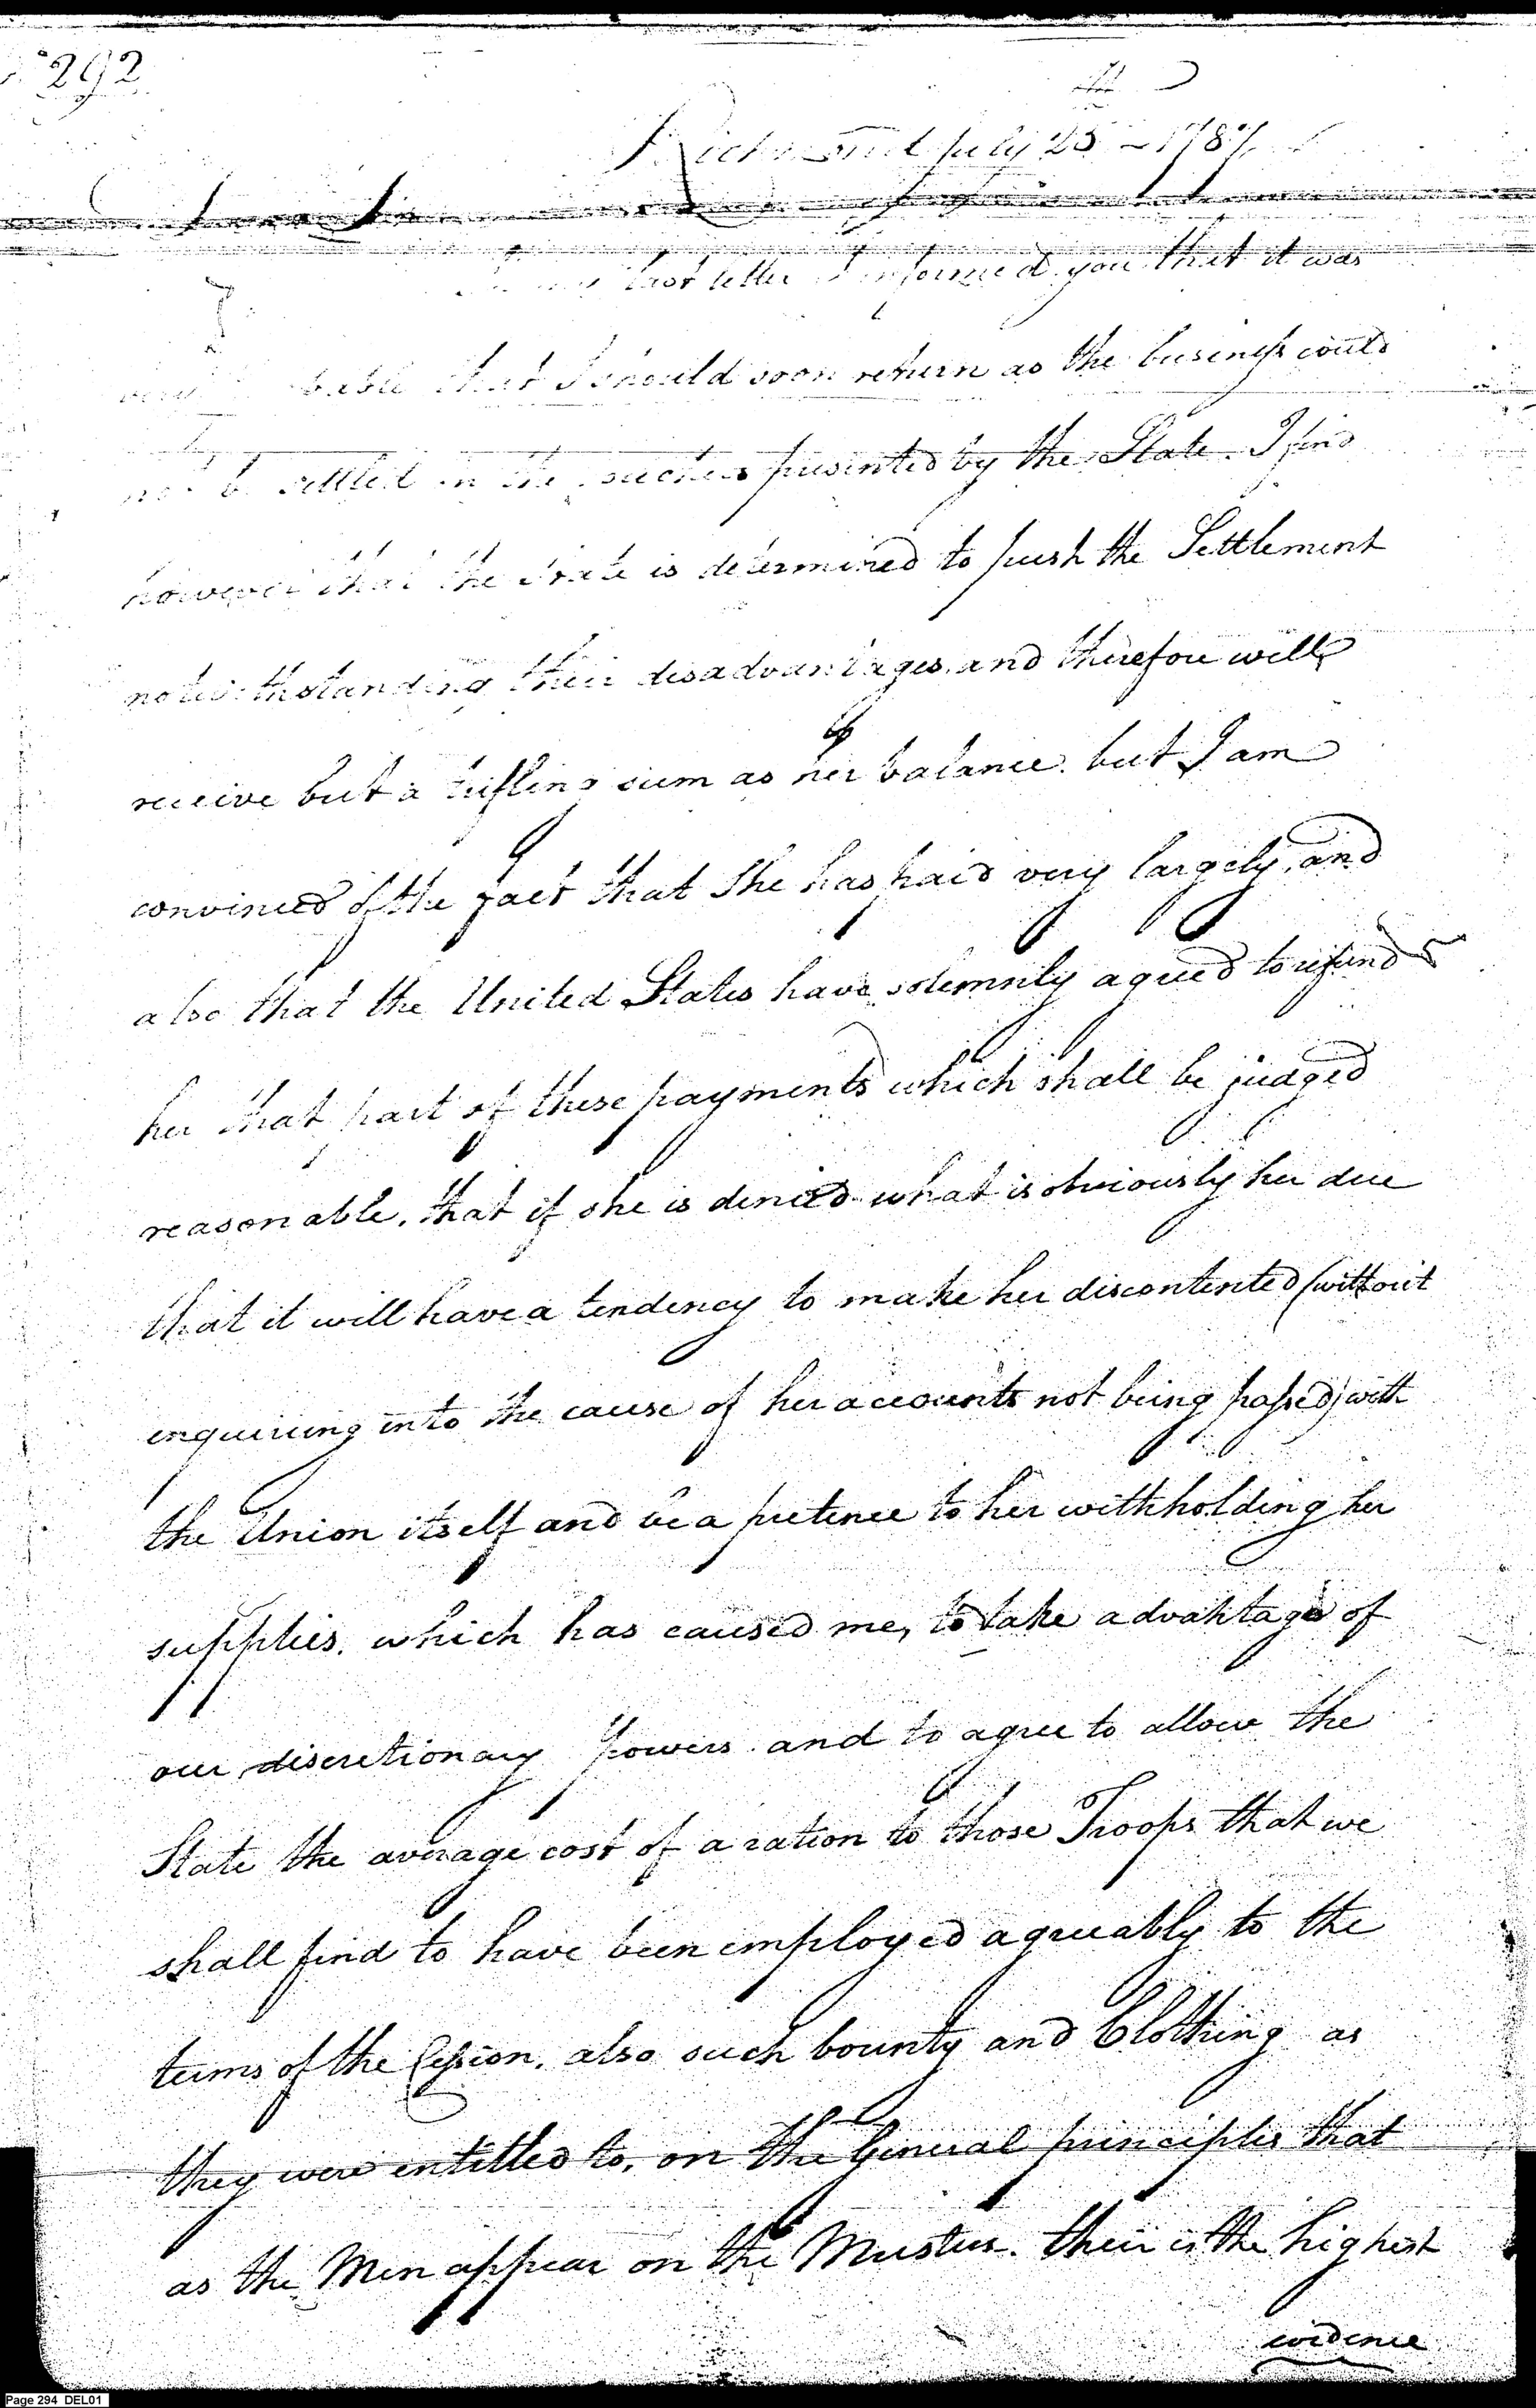 292
Richmond July 25 - 1787
last letter I informed you that it was
that I should soon return as the business could
not be settled on the presented by the State. I find
however that the State is determined to push the Settlement
notwithstanding their disadvantages and therefore will
receive but a trifling sum as her balance. but I am
convinced of the fact that She has paid very largely, and
also that the United States have solemnly agreed to refund
her that part of these payments which shall be judged
reasonable, that if she is denied what is obviously her due
that it will have a tendency to make her discontented (without
enquiring into the cause of her accounts not being passed) with
the Union itself and be a pretence to her withholding her
supplies. which has caused me, to take advantage of
our discretionary Powers and to agree to allow the
State the average cost of a ration to those Troops that we
shall find to have been employed agreeably to the
terms of the Cession. also such bounty and Clothing as
they were entitled to, on the General principles that
as the Men appear on the Musters. their is the highest
evidence
Page 294 DEL01